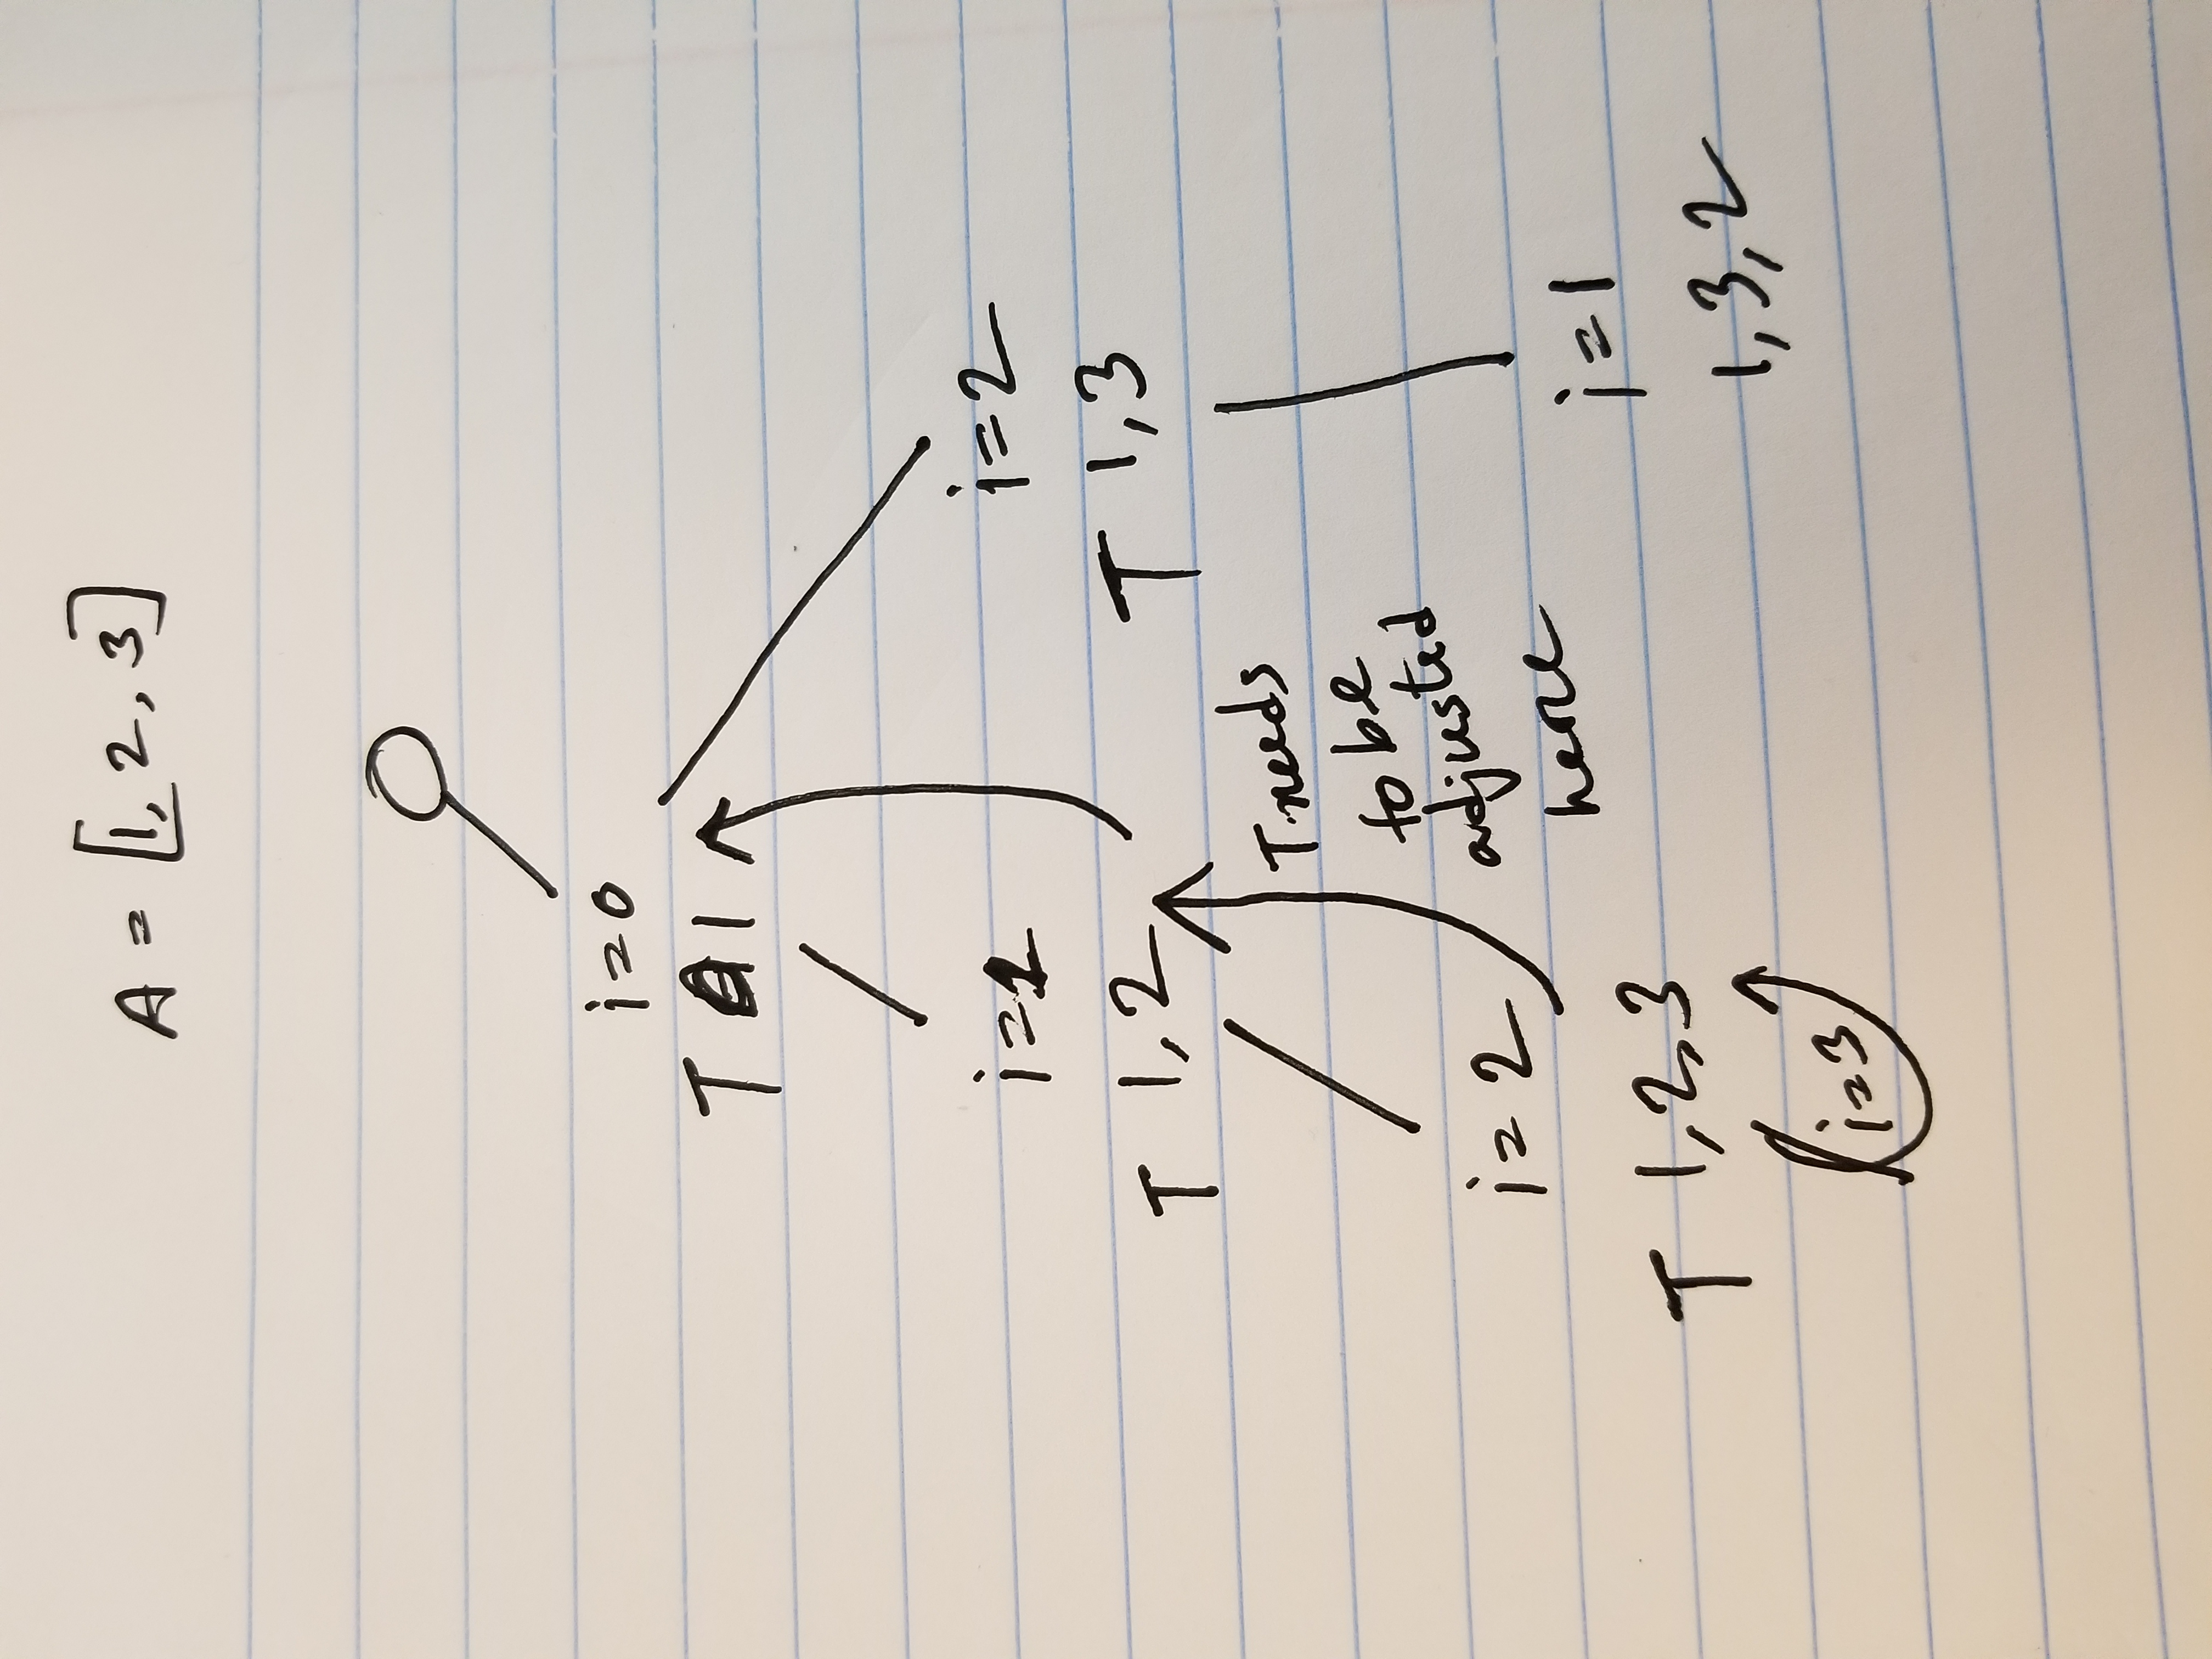 A = [1, 2, 3]
i=0
T 1
i=1
i=2
T 1,2
T 1,3
T needs
to be
adjusted
here
i=2
T 1,2,3
i=1
1,3,2
i=3